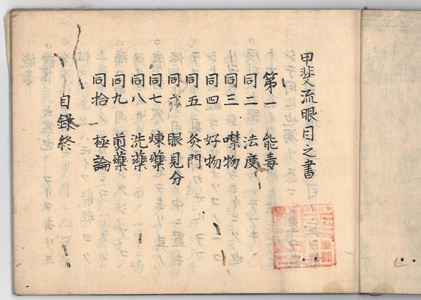 甲斐流眼目之書
第一 能毒
同二 法度
同三 噤物
同四 好物
同五 灸門
同六 眼見分
同七 煉藥
同八 洗藥
同九 煎藥
同拾 極論
目録終